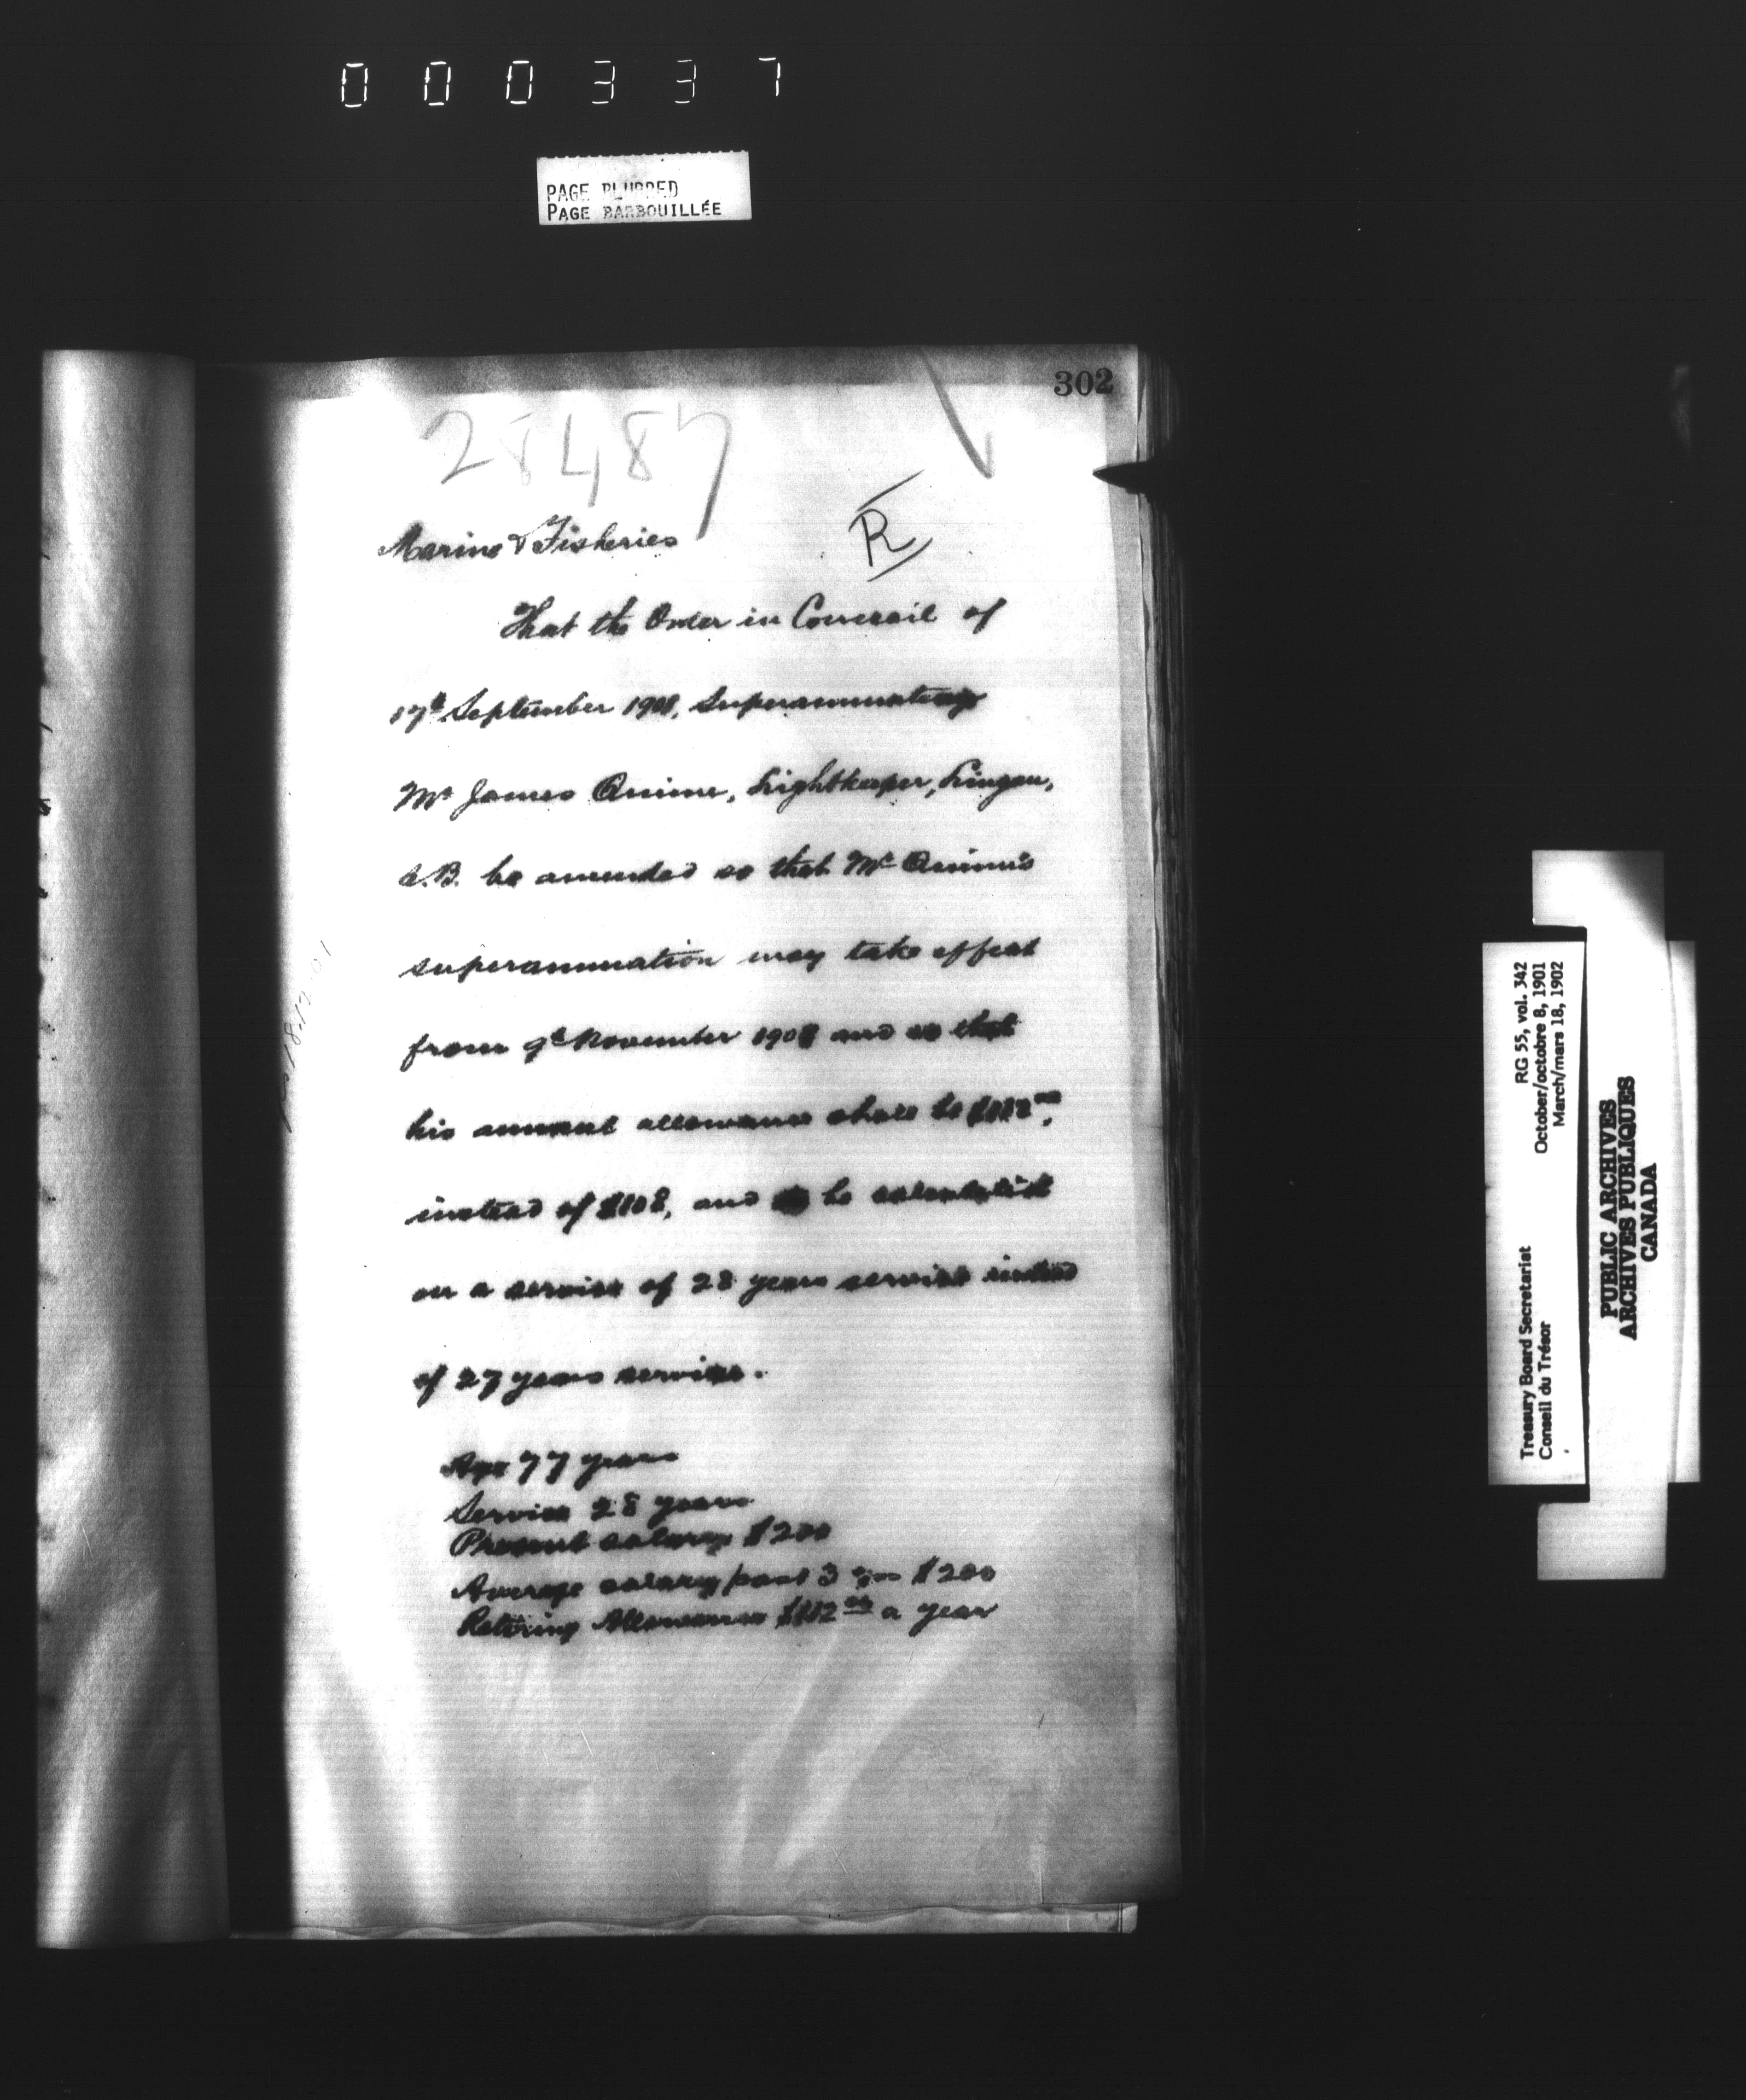 000337
PAGE BLURRED
PAGE BARBOUILLÉE
302
28487
R
Marine & Fisheries
That the Order in Council of
17th September 1901, Superannuating
Mr James Quinn, Lightkeeper, Lingan,
C.B. be amended so that Mr Quinn's
superannuation may take effect
from 9th November 1901 and so that
his annual allowance shall be $112 00,
instead of $108, and be calculated
on a service of 28 years service instead
of 27 years service.
Age 77 years
Service 28 years
Present salary $200
Average salary past 3 yrs $200
Retiring Allowance $112 00 a year
RG 55, vol. 342
October/octobre 8, 1901
March/mars 18, 1902
Treasury Board Secretariat
Conseil du Trésor
PUBLIC ARCHIVES
ARCHIVES PUBLIQUES
CANADA